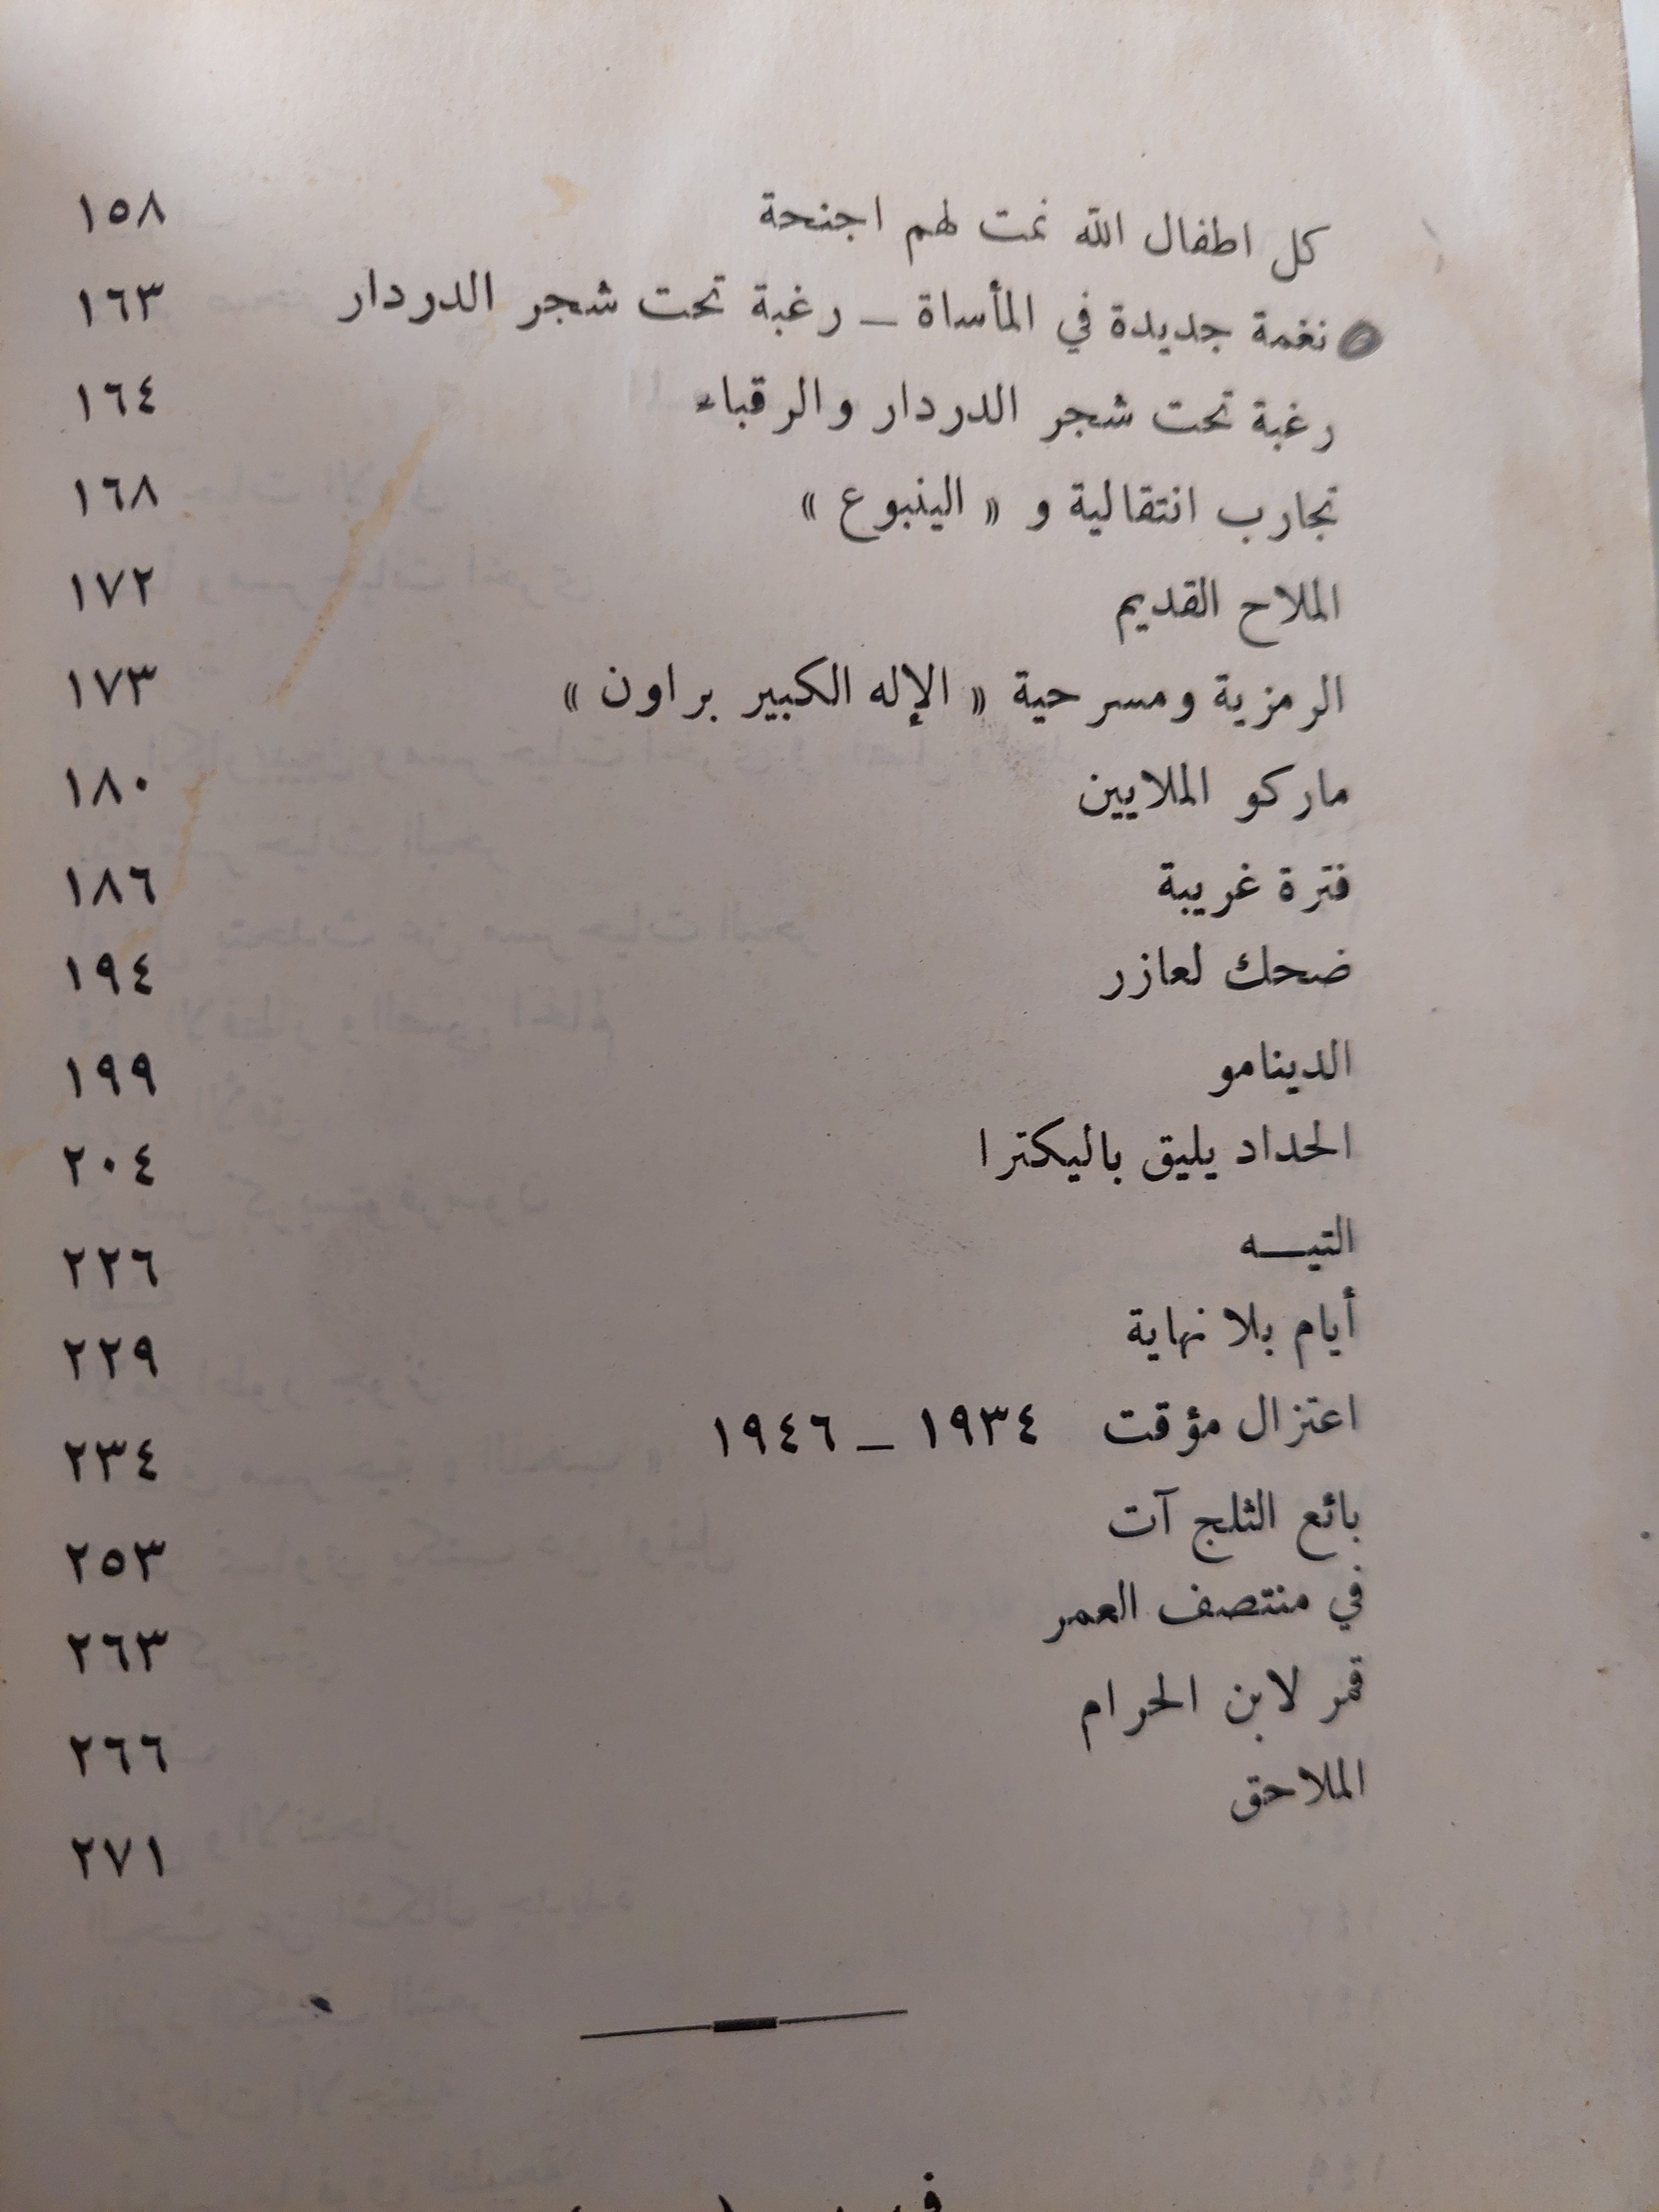 كل اطفال الله نمت لهم اجنحة ١٥٨
نغمة جديدة في المأساة ــ رغبة تحت شجر الدردار ١٦٣
رغبة تحت شجر الدردار والرقباء ١٦٤
تجارب انتقالية و « الينبوع » ١٦٨
الملاح القديم ١٧٢
الرمزية ومسرحية « الإله الكبير براون » ١٧٣
ماركو الملايين ١٨٠
فترة غريبة ١٨٦
ضحك لعازر ١٩٤
الدينامو ١٩٩
الحداد يليق باليكترا ٢٠٤
التيـــه ٢٢٦
أيام بلا نهاية ٢٢٩
اعتزال مؤقت ١٩٣٤ ــ ١٩٤٦ ٢٣٤
بائع الثلج آت ٢٥٣
في منتصف العمر ٢٦٣
قمر لابن الحرام ٢٦٦
الملاحق ٢٧١